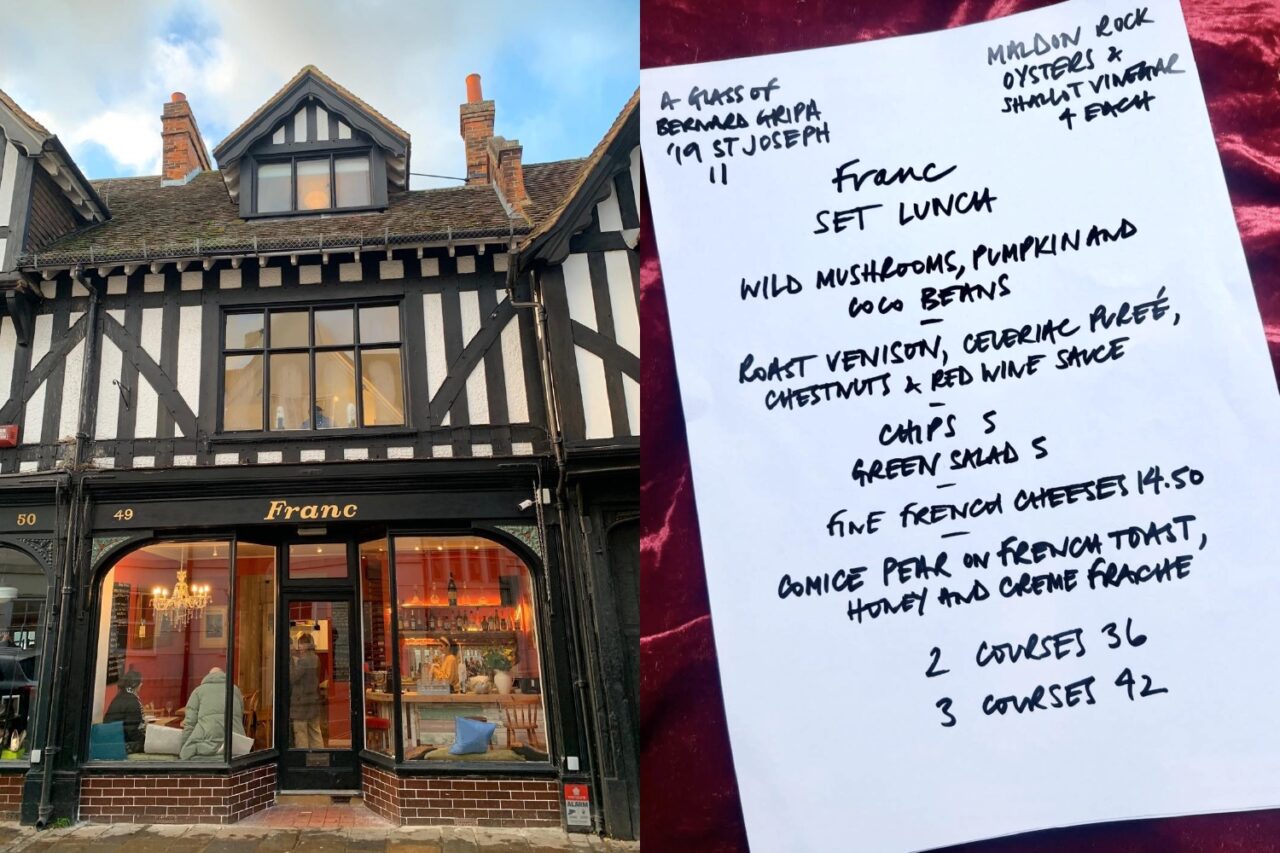 50
49
Franc
ALARM
A GLASS OF
BERNARD GRIPA
'19 ST JOSEPH
11
MALDON ROCK
OYSTERS &
SHALLOT VINEGAR
4 EACH
Franc
SET LUNCH
WILD MUSHROOMS, PUMPKIN AND
COCO BEANS
–
ROAST VENISON, CELERIAC PUREÉ,
CHESTNUTS & RED WINE SAUCE
–
CHIPS 5
GREEN SALAD 5
–
FINE FRENCH CHEESES 14.50
–
COMICE PEAR ON FRENCH TOAST,
HONEY AND CREME FRACHE
2 COURSES 36
3 COURSES 42